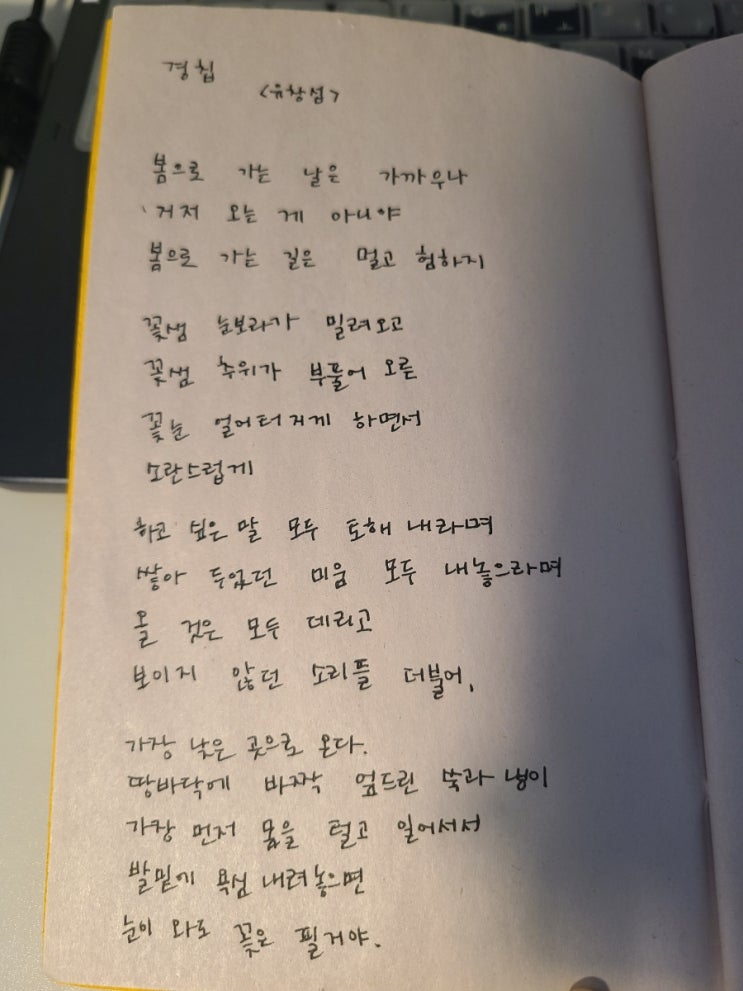 경칩
<유창섭>
봄으로 가는 날은 가까우나
거저 오는 게 아니야
봄으로 가는 길은 멀고 험하지
꽃샘 눈보라가 밀려오고
꽃샘 추위가 부풀어 오른
꽃눈 얼어터지게 하면서
소란스럽게
하고 싶은 말 모두 토해 내라며
쌓아 두었던 미움 모두 내놓으라며
올 것은 모두 데리고
보이지 않던 소리들 더불어,
가장 낮은 곳으로 온다.
땅바닥에 바짝 엎드린 쑥과 냉이
가장 먼저 몸을 털고 일어서서
발밑에 욕심 내려놓으면
눈이 와도 꽃은 필거야.